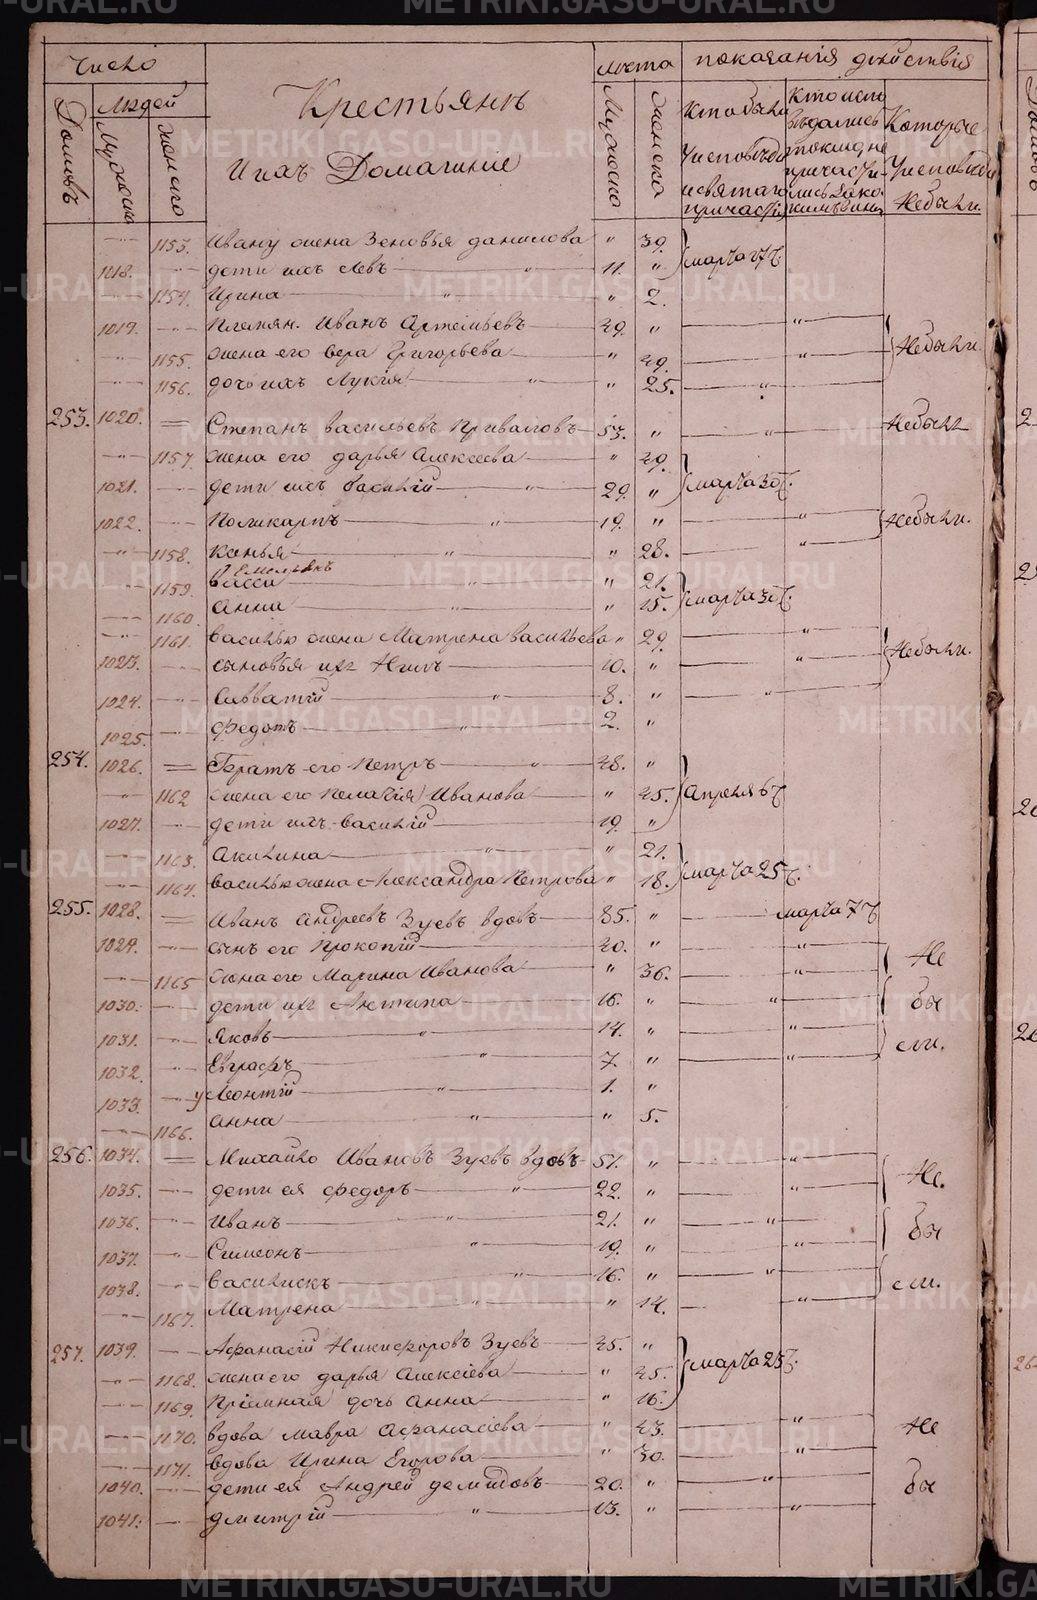 Число
Крестьянъ
И ихъ Домашніе
лѣта
показанія дѣйствія
Домовъ
Людей
Мужеска
женскаго
Мужеска
женска
Кто были
Исповѣди
и святаго
причастія
Которые
Исповѣди
Небыли.
1153. Ивану жена Зеновья данилова " 39. марта 27 ч.
1118. дети ихъ Левъ " 11. "
1154. Ирина " " 2.
1019. племян. Иванъ Артемьевъ 49. " "
1155. жена его вера Григорьева " 49. " Небыли.
1156. дочь ихъ Лукия " " 25. "
253. 1020. Степанъ васильевъ Приваловъ 53. " " Небыли
1157. жена его дарья Алексеева " 49.
1021. дети ихъ василій " 29. " марта 30 ч.
1022. Поликарпъ " 19. " " Небыли.
1158. " " 28. "
1159. васса " 21.
1160. Анна " " 15. марта 30 ч.
1161. василью жена Матрена васильева " 29. "
1023. сыновья их 10. " " Небыли.
1024. Савватій " 8. " "
1025. Федотъ " 2. "
254. 1026. Братъ его Петръ " 48. "
1162 жена его Пелагія Иванова " 45. Апреля 6 ч
1027. дети ихъ василій 19. "
1163. Акилина " " 21.
1164. василью жена Александра Петрова " 18. марта 25 ч.
255. 1028. Иванъ Андреевъ Зуевъ вдовъ 85. " марта 7 ч
1029. сынъ его Прокопій 40. " "
1165 жена его Марина Иванова " 36. " Не
1030. дети их Антипа 16. " " бы
1031. Яковъ " 14. " "
1032. Евграфъ " 7. " " ли.
1033. Леонтій " 1. "
1166. анна " " 5.
256. 1034. Михайло Ивановъ Зуевъ вдовъ 51. " "
1035. дети ея федоръ " 22. " Не.
1036. Иванъ " 21. " "
1037. Симеонъ " 19. " " бы
1038. василискъ " 16. " "
1167. Матрена " " 14. " ли.
257. 1039. Афанасій Никифоровъ Зуевъ 45. "
1168. жена его дарья Алексіева " 45. марта 25 ч.
1169. Пріемная дочь анна " 16.
1170. вдова мавра Афанасіева " 43. " Не
1171. вдова Ирина Егорова " 30. "
1040. дети ея Андрей демидовъ 20. " " бы
1041. дмитрій " 13. " "
METRIKI.GASO-URAL.RU